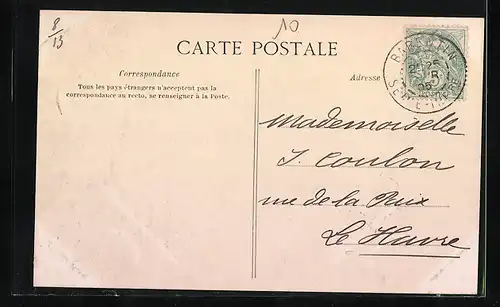 8/13
10
CARTE POSTALE
Correspondance
Tous les pays étrangers n'acceptent pas la
correspondance au recto, se renseigner à la Poste.
Adresse
Mademoiselle
J. Coulon
rue de la Paix
Le Havre